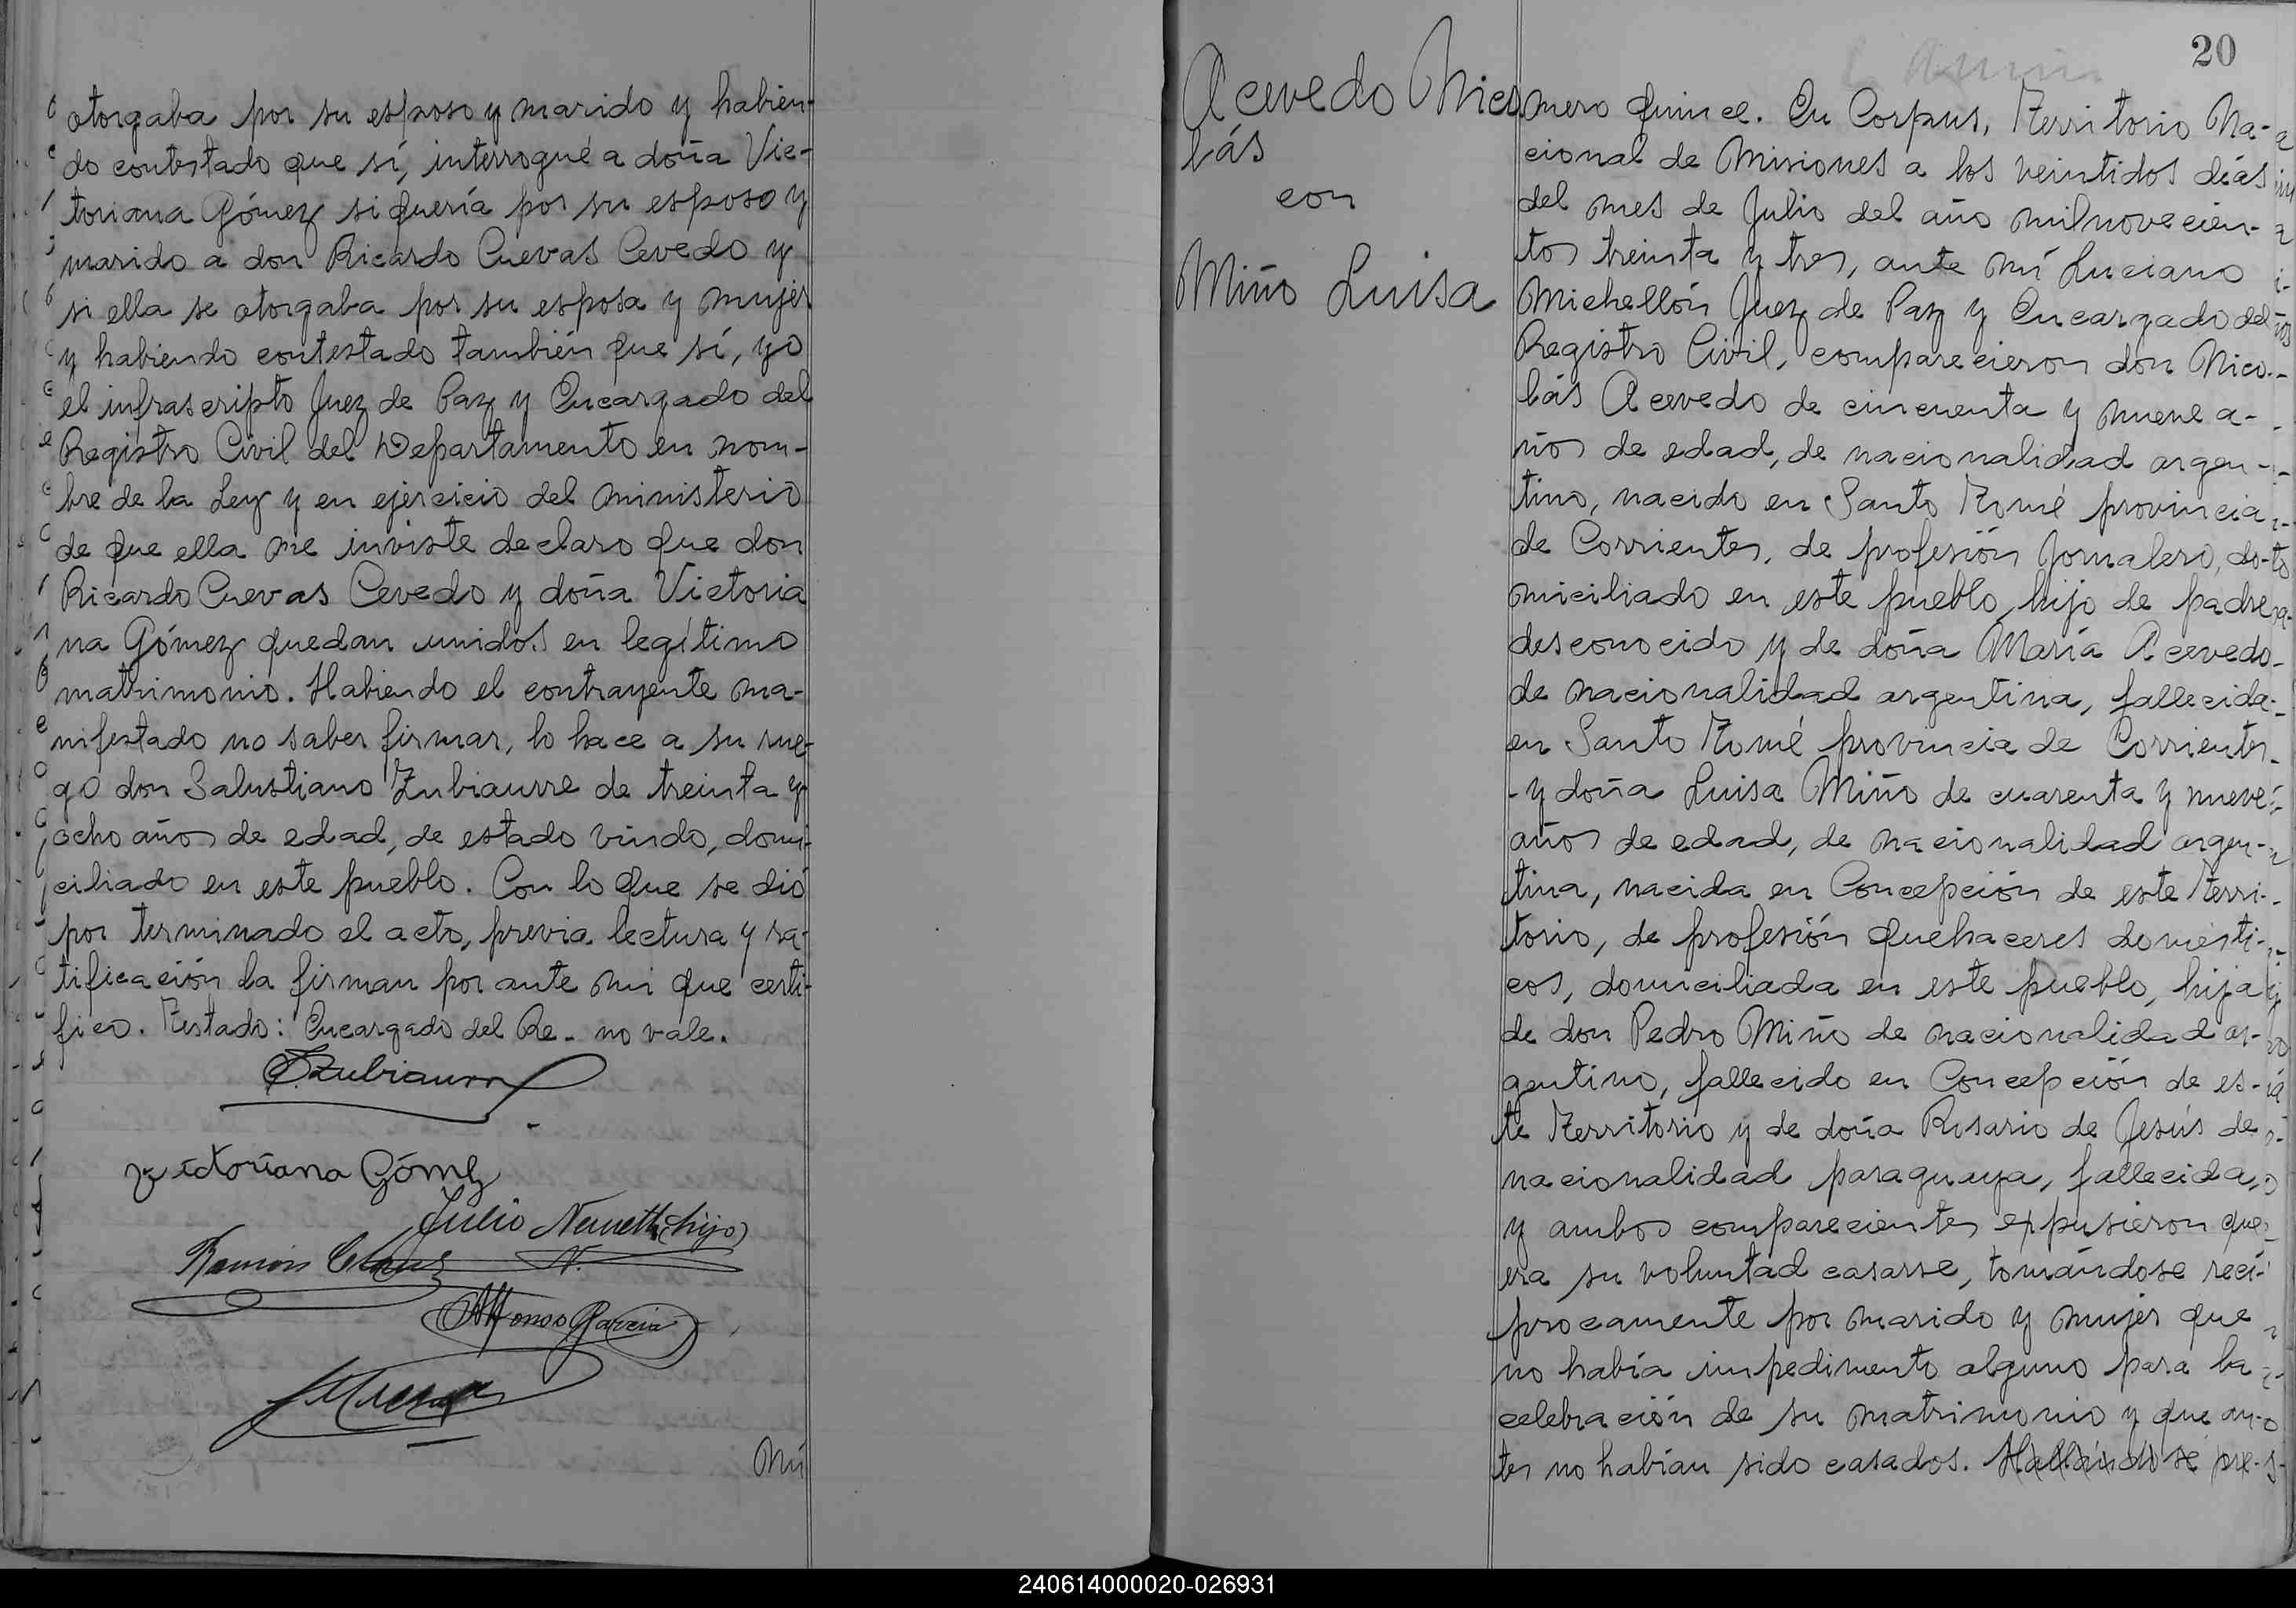 otorgaba por su esposo y marido y habien-
do contestado que sí, interrogué a doña Vic-
toriana Gómez si quería por su esposo y
marido a don Ricardo Cuevas Cevedo y
si ella se otorgaba por su esposa y mujer
y habiendo contestado también que sí, yo
el infrascripto Juez de Paz y Encargado del
Registro Civil del Departamento en nom-
bre de la Ley y en ejercicio del ministerio
de que ella me inviste declaro que don
Ricardo Cuevas Cevedo y doña Victoria
na Gómez quedan unidos en legítimo
matrimonio. Habiendo el contrayente ma-
nifestado no saber firmar, lo hace a su rue-
go don Salustiano Zubiaurre de treinta y
ocho años de edad, de estado viudo, domi-
ciliado en este pueblo. Con lo que se dió
por terminado el acto, previa lectura y ra-
tificación la firman por ante mi que certi-
fico. Testado: Encargado del Re- no vale.
S. Zubiaurre
Victoriana Gómez
Julio Nemeth (hijo)
Ramón
Alfonso Garcia
Nú
20
Acevedo Nico
lás
con
Miño Luisa
mero quince. En Corpus, Territorio Na-
cional de Misiones a los veintidos días
del mes de Julio del año mil novecien-
tos treinta y tres, ante mí Luciano
Michellón Juez de Paz y Encargado del
Registro Civil, comparecieron don Nico-
lás Acevedo de cincuenta y nueve a-
ños de edad, de nacionalidad argen-
tino, nacido en Santo Tomé provincia
de Corrientes, de profesión Jornalero, do-
miciliado en este pueblo, hijo de padre
desconocido y de doña María Acevedo
de nacionalidad argentina, fallecida
en Santo Tomé provincia de Corrientes
- y doña Luisa Miño de cuarenta y nueve
años de edad, de nacionalidad argen-
tina, nacida en Concepción de este Terri-
torio, de profesión quehaceres domésti-
cos, domiciliada en este pueblo, hija
de don Pedro Miño de nacionalidad ar-
gentino, fallecido en Concepción de es-
te Territorio y de doña Rosario de Jesús de
nacionalidad paraguaya, fallecida,
y ambos comparecientes expusieron que
era su voluntad casarse, tomándose recí-
procamente por marido y mujer que
no había impedimento alguno para la
celebración de su matrimonio y que an-
tes no habían sido casados. Hallándose pre-
240614000020-026931